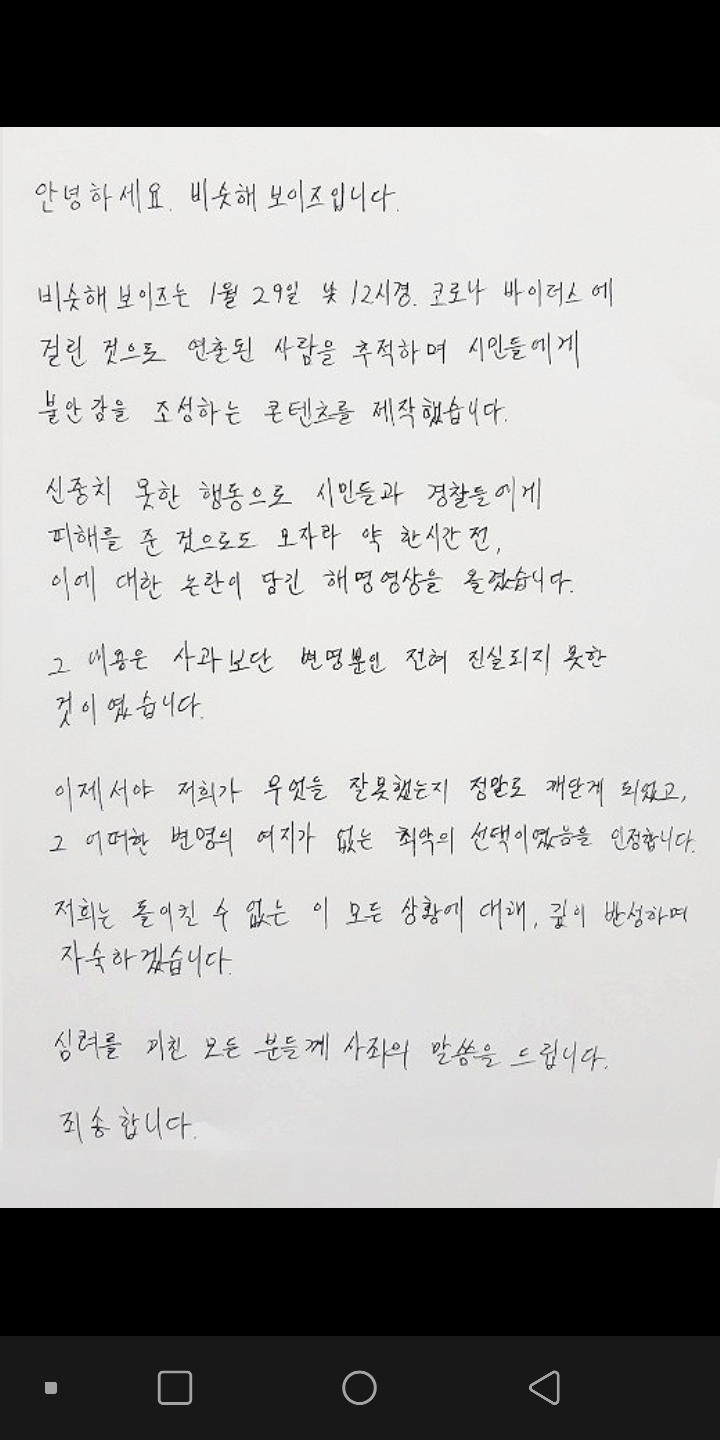 안녕하세요. 비슷해 보이즈입니다.
비슷해 보이즈는 1월 29일 낮 12시경. 코로나 바이더스에
걸린 것으로 연출된 사람을 추적하며 시민들에게
불안감을 조성하는 콘텐츠를 제작했습니다.
신중치 못한 행동으로 시민들과 경찰들에게
피해를 준 것으로도 모자라 약 한시간 전,
이에 대한 논란이 담긴 해명영상을 올렸습니다.
그 내용은 사과보단 변명뿐인 전혀 진실되지 못한
것이였습니다.
이제서야 저희가 무엇을 잘못했는지 정말로 깨닫게 되었고,
그 어떠한 변명의 여지가 없는 최악의 선택이였음을 인정합니다.
저희는 돌이킬 수 없는 이 모든 상황에 대해, 깊이 반성하며
자숙하겠습니다.
심려를 끼친 모든 분들께 사죄의 말씀을 드립니다.
죄송합니다.